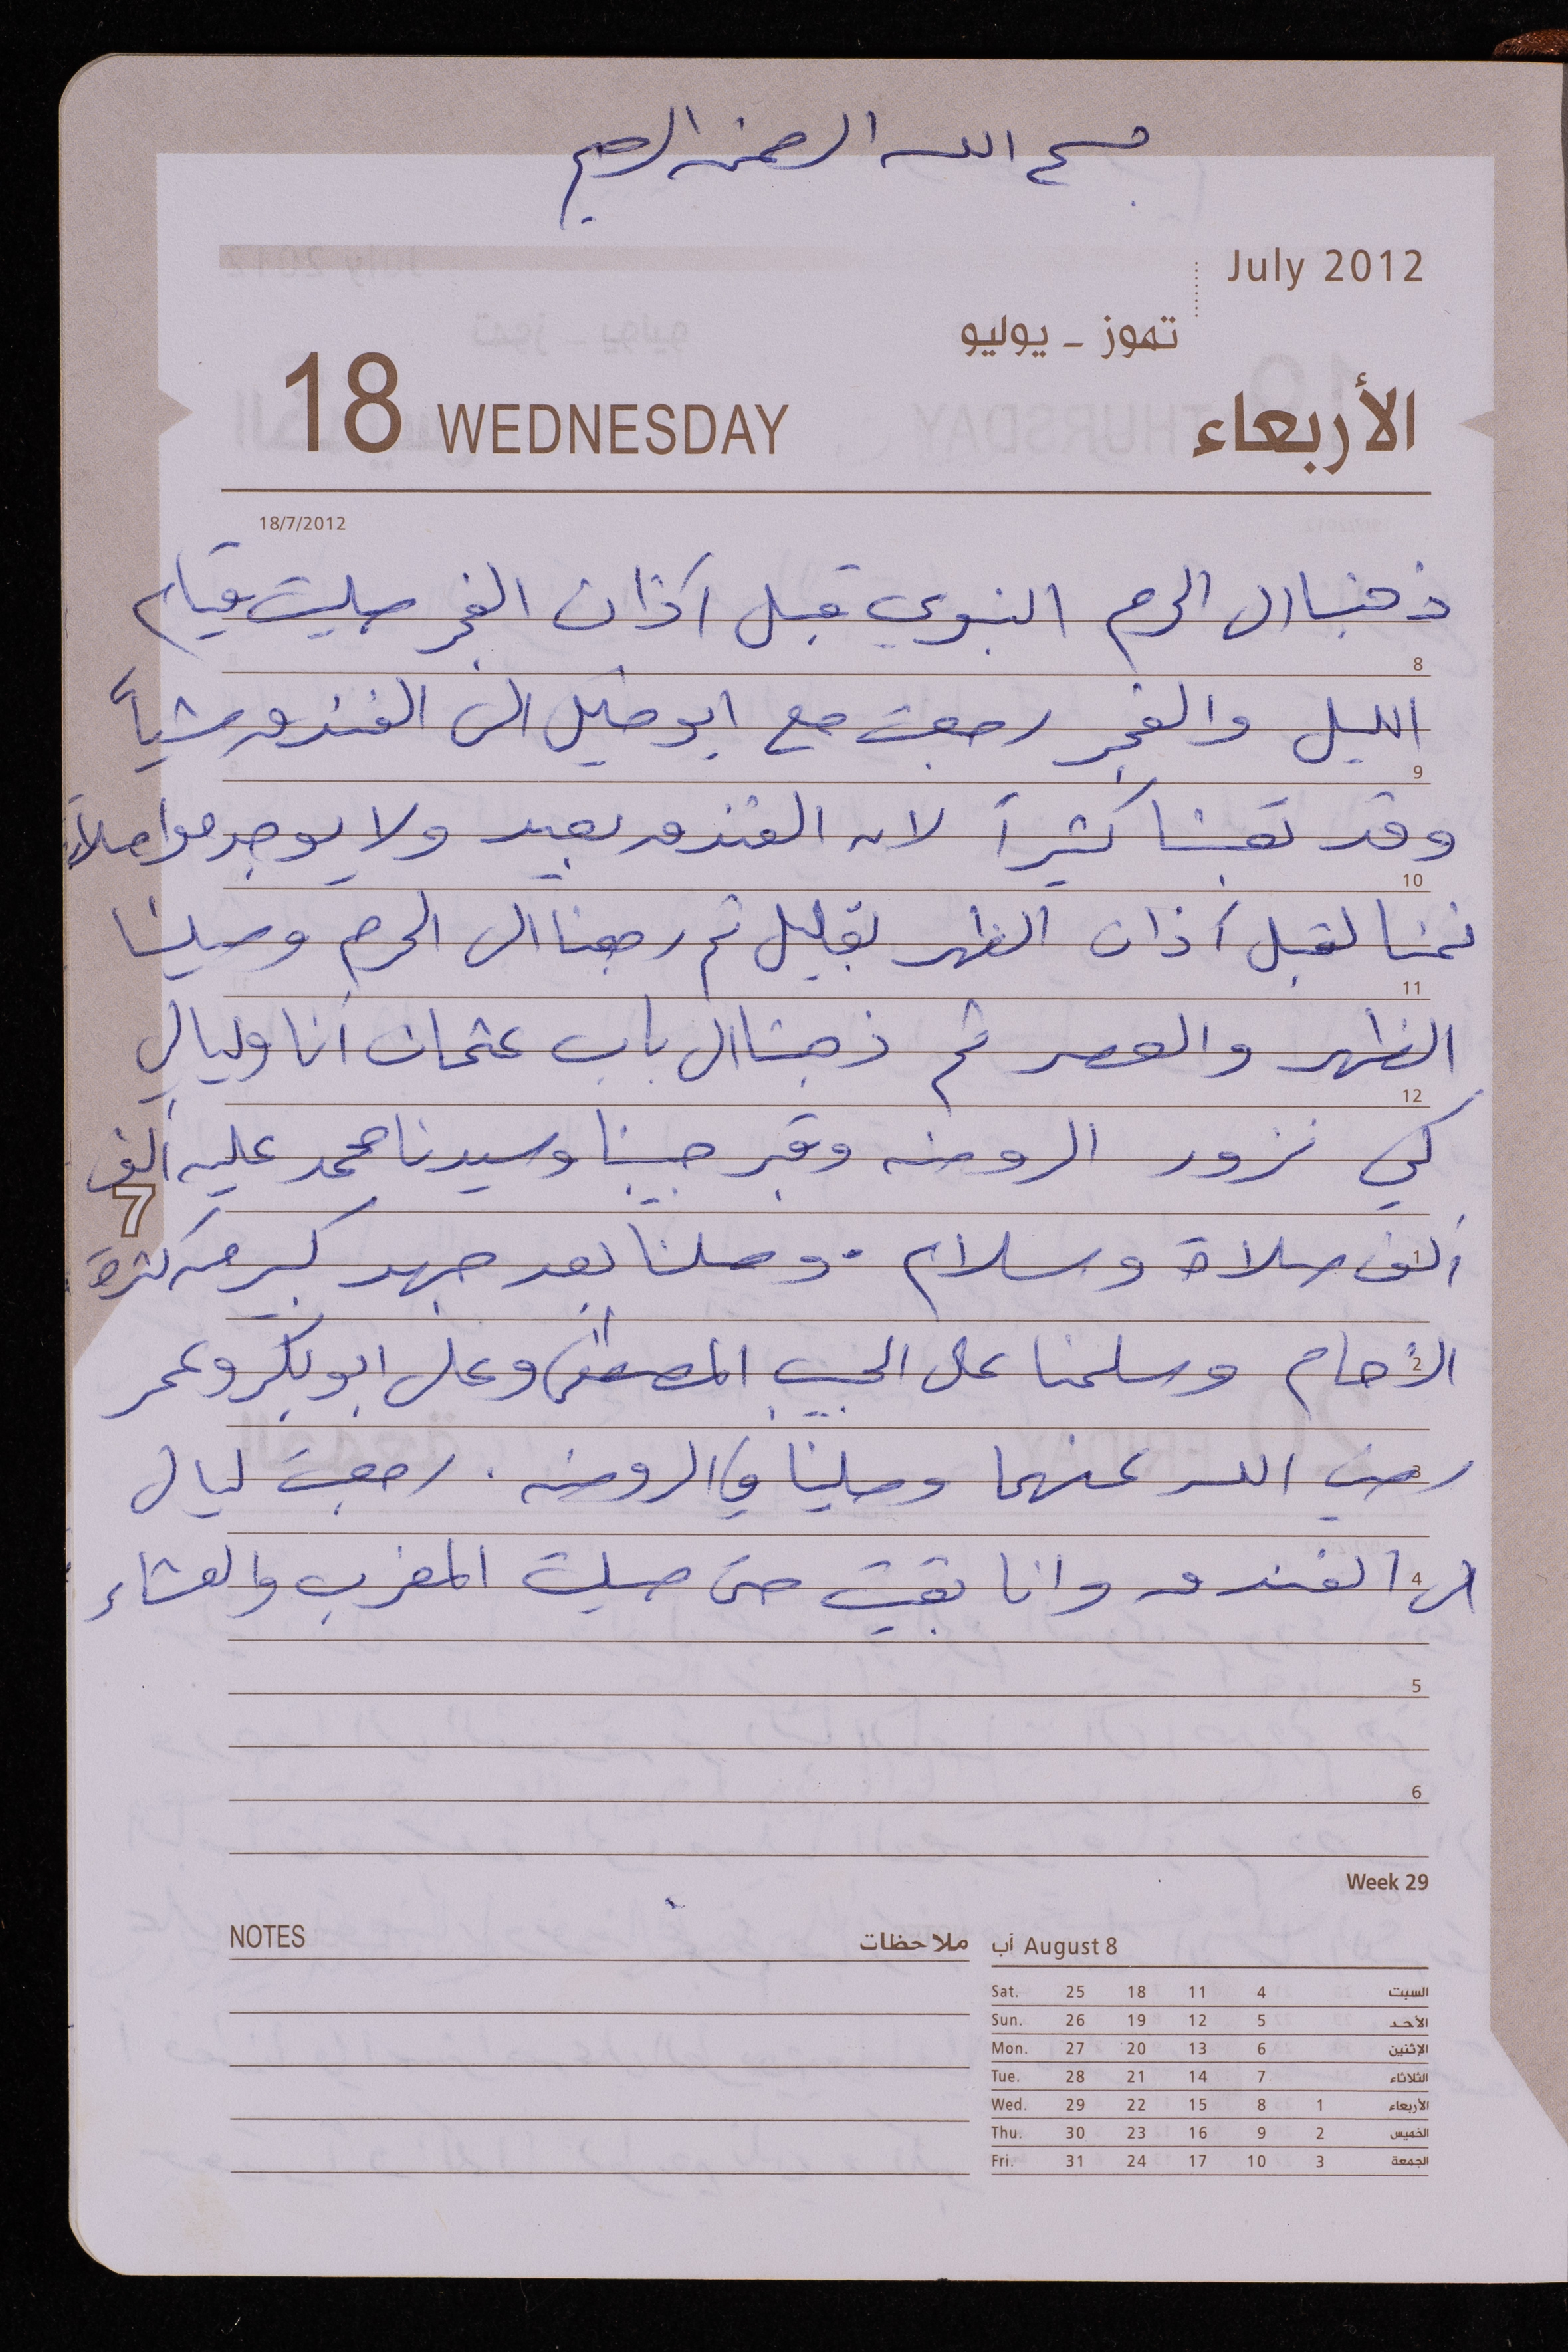 بسم الله الرحمن الرحيم
July 2012
تموز - يوليو
18 WEDNESDAY الأربعاء
18/7/2012
ذهبنا الى الحرم النبوي قبل آذان الفجر صليت قيام
8
الليل والفجر رجعت مع ابو خليل الى الفندق مشياً
9
وقد تعبنا كثيراً لان الفندق بعيد ولا يوجد مواصلات
10
نمنا لقبل آذان الظهر بقليل ثم رجعنا الى الحرم وصلينا
11
الظهر والعصر ثم ذهبنا الى باب عثمان أنا وليالي
12
كي نزور الروضه وقبر حبيبنا وسيدنا محمد عليه ألف
7
ألف صلاة وسلام . وصلنا بعد جهد كبير من كثرة
1
الأزحام وسلمنا على الحبيب المصطفى وعلى ابو بكر وعمر
2
رضي الله عنهما وصلينا في الروضه . رجعت ليالي
3
الى الفندق وانا بقيت حتى صليت المغرب والعشاء
4
5
6
Week 29
NOTES ملاحظات
آب August 8
Sat. 25 18 11 4 السبت
Sun. 26 19 12 5 الأحد
Mon. 27 20 13 6 الإثنين
Tue. 28 21 14 7 الثلاثاء
Wed. 29 22 15 8 1 الأربعاء
Thu. 30 23 16 9 2 الخميس
Fri. 31 24 17 10 3 الجمعة